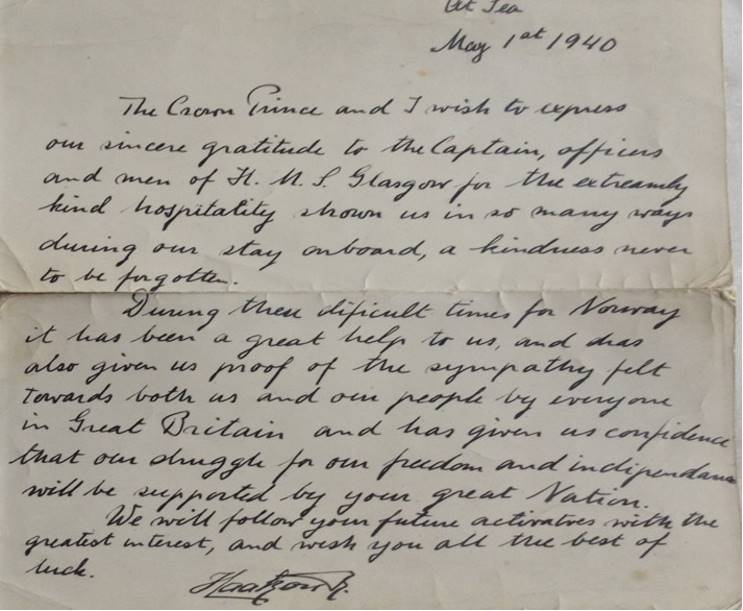 At Sea
May 1st 1940
The Crown Prince and I wish to express
our sincere gratitude to the Captain, officers
and men of H. M. S. Glasgow for the extreamly
kind hospitality shown us in so many ways
during our stay onboard, a kindness never
to be forgotten.
During these dificult times for Norway
it has been a great help to us, and has
also given us proof of the sympathy felt
towards both us and our people by everyone
in Great Britain and has given us confidence
that our struggle for our freedom and indipendance
will be supported by your great Nation.
We will follow your future activatres with the
greatest interest, and wish you all the best of
luck.
Haakon R.